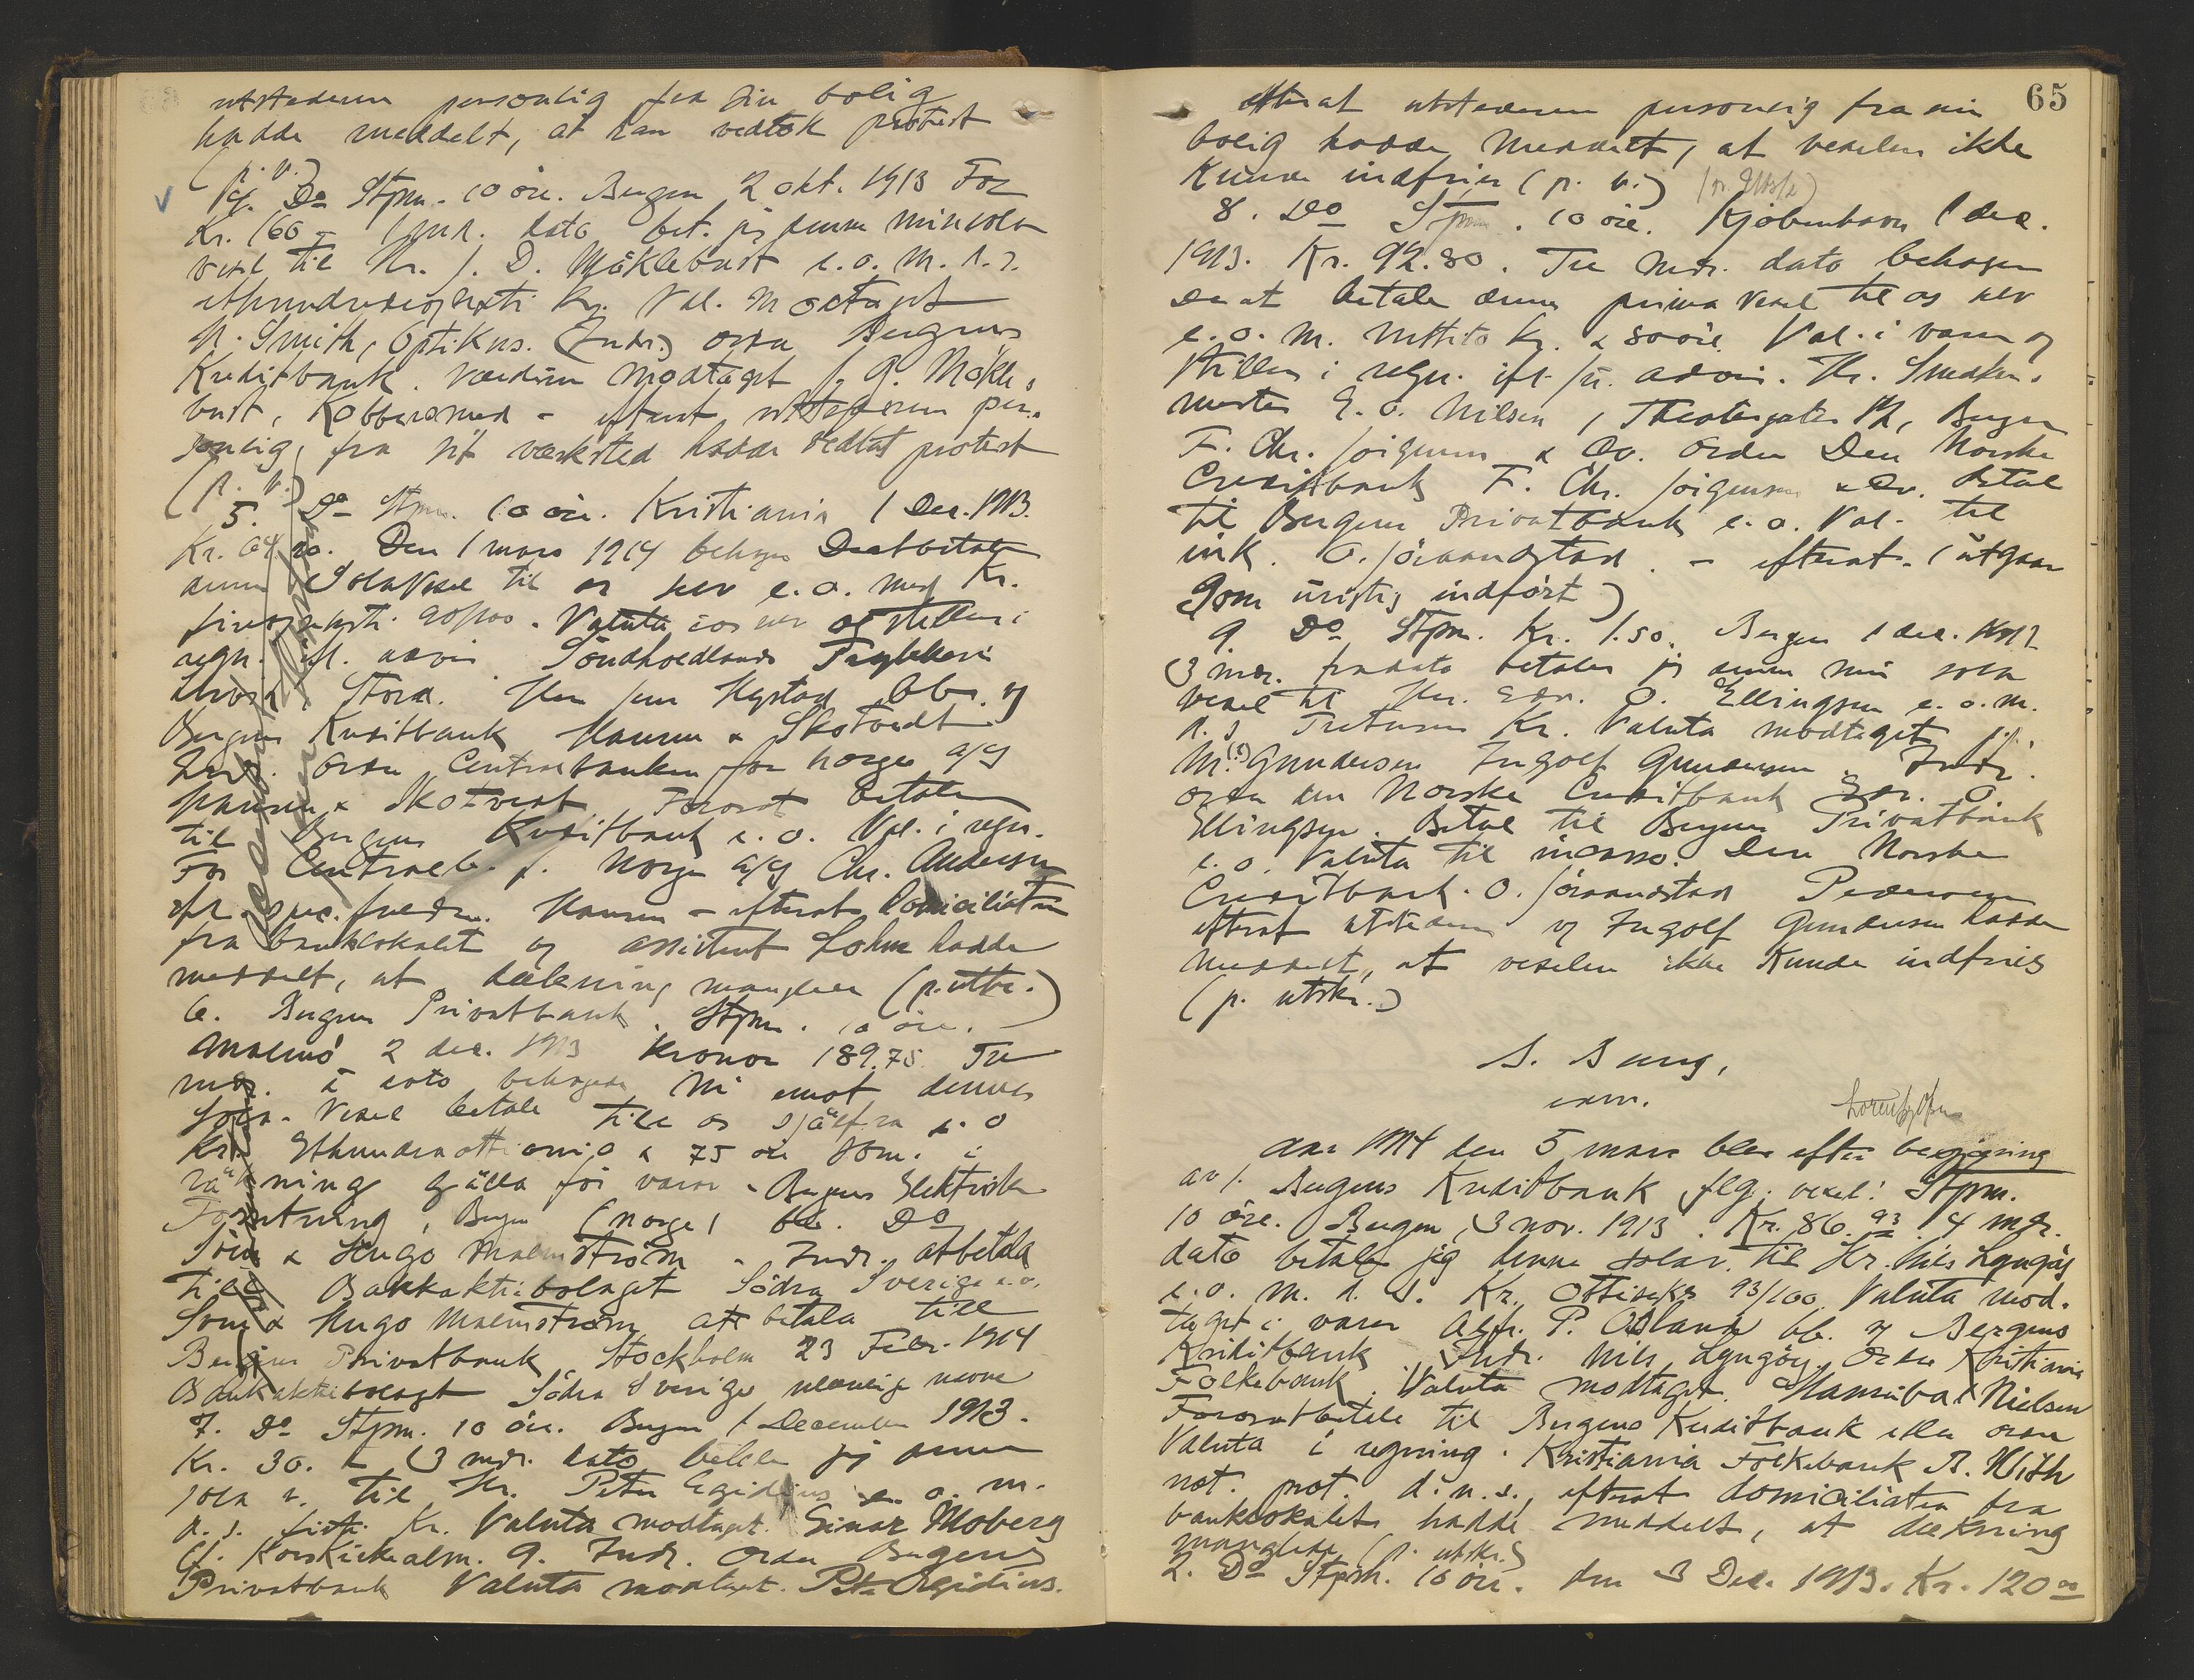 utstederen personlig fra sin bolig
hadde meddelt, at han vedtok protest
(p. v.)
4. Do Stpm. 10 öre. Bergen 2 okt. 1913 For
Kr. 160 - mnd. dato bet. jeg denne min sola
vexel til Hr. J. D. Mäklebust e. o. m. d. s.
ethundredeogseksti Kr. Val. Modtaget
N. Smith, Optikus. (Indr.) ordre Bergens
Kreditbank. Værdien modtaget J. D. Mökle-
bust, Kobbersmed - efterat utstederen per-
sonlig, fra sit verksted hadde vedtat protest
(p. v.)
5. Do Stpm. 10 öre. Kristiania 1 Dec. 1913.
Kr. 64.20. Den 1 mars 1914 behager De at betale
denne Sola Vexel til os selv e. o. med Kr.
fireogseksti 20/100. Valuta i os selv og stilles i
regn. ifl. advis Söndhordlands Trykkeri
Stord.
Bergens Kreditbank Hansen & Skotvedt
Indr. Ordre Centralbanken for Norge a/s
Hansen & Skotvedt Forost betale
til Bergens Kreditbank e. o. Val. i regn.
For Centralb. f. Norge a/s Chr. Andersen
efl. spec. fuldm. Hansen - efterat Domiciliaten
fra banklokalet og assistent Lohm hadde
meddelt, at dækning mangler (p. utbr.)
6. Bergens Privatbank. Stpm. 10 öre.
Malmö 2 dec. 1913 Kronor 189.75 Tre
mdr. à dato behagade Ni emot denna
Sola-Vexel betala till os själfva e. o
Kr. Etthundraottionio & 75 öre som i
räkning gälla för varor. Bergens Elektriske
Forretning, Bergen (Norge) bb. Do
Sven & Hugo Malmström - Indr. att betala
till Bankaktiebolaget Södra Sverige e. o.
Sven & Hugo Malmström att betala till
Bergens Privatbank Stockholm 23 Febr. 1914
Bankaktiebolaget Södra Sverige
7. Do Stpm. 10 öre. Bergen 1 December 1913.
Kr. 30. - (3 mdr. dato betaler jeg denne
sola v. til Hr. Peter Egidius e. o. m.
d. s. Kr. Valuta modtaget. Einar Moberg
Korskirkealm. 9. Indr. Ordre Bergens
Privatbank Valuta modtaget. Peter Egidius.
65
efterat utstederen personlig fra sin
bolig hadde meddelt, at vexelen ikke
kunde indfries (p. v.)
8. Do Stpm. 10 öre. Kjöbenhavn 1 dec.
1913. Kr. 92.80. Tre mdr. dato behager
De at betale denne prima vexel til os selv
e. o. m. nittito Kr. & 80 öre. Val. i varer og
stilles i regn. ifl. advis. Hr. Smedem-
mester E. O. Nilsen, Theatergaten, Bergen
F. Chr. Jörgensen & Co. Ordre Den Norske
Creditbank F. Chr. Jörgensen & Co. Betal
til Bergens Privatbank e. o. Val. til
ink. O. Jöraandstad. - efterat - (utgaar
som urigtig indfört)
9. Do Stpm. Kr. 1.50. Bergen 1 dec. 1913
(3 mdr. fra dato betaler jeg denne min sola
vexel til Hr. Edv. O. Ellingsen e. o. m.
d. s. Tretusen Kr. Valuta modtaget
M. (?) Gundersen Ingolf Gundersen. Indr.
ordre den Norske Creditbank Edv. O
Ellingsen. Betal til Bergens Privatbank
e. o. Valuta til incasso. Den Norske
Creditbank. O. Jöraandstad Pedersen
efterat utstederen og Ingolf Gundersen hadde
meddelt, at vexelen ikke kunde indfries
(p. utskr.)
S. Bang,
Aar 1914 den 5 mars blev efter begjæring
av 1. Bergens Kreditbank flg. vexel: Stpm.
10 öre. Bergen, 3 nov. 1913. Kr. 86.93. 4 mdr.
dato betaler jeg denne solav. til Hr. Nils Lyngöy
e. o. m. d. s. Kr. Ottiseks 93/100 Valuta mod-
taget i varer Alfr. P. Osland bb. og Bergens
Kreditbank. Indr. Nils Lyngöy. Ordre Kristiania
Folkebank. Valuta modtaget. Hannibal Nielsen
Foranst. betale til Bergens Kreditbank eller ordre
Valuta i regning. Kristiania Folkebank A. With
not. prot. d. n. s., efterat domiciliaten fra
banklokalet hadde meddelt, at dækning
manglede (p. utskr.)
2. Do Stpm. 10 öre. den 3 Dec. 1913. Kr. 120 00